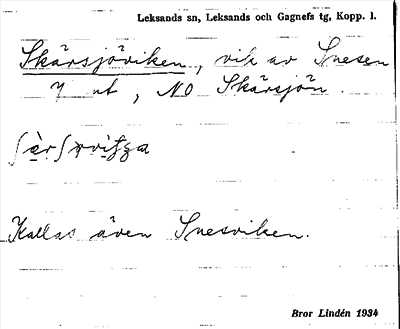 Leksands sn, Leksands och Gagnefs tg, Kopp. l.
Skärsjöviken, vik av Snesen
7 nt, NO Skärsjön.
Kallas även Snesviken.
Bror Lindén 1934